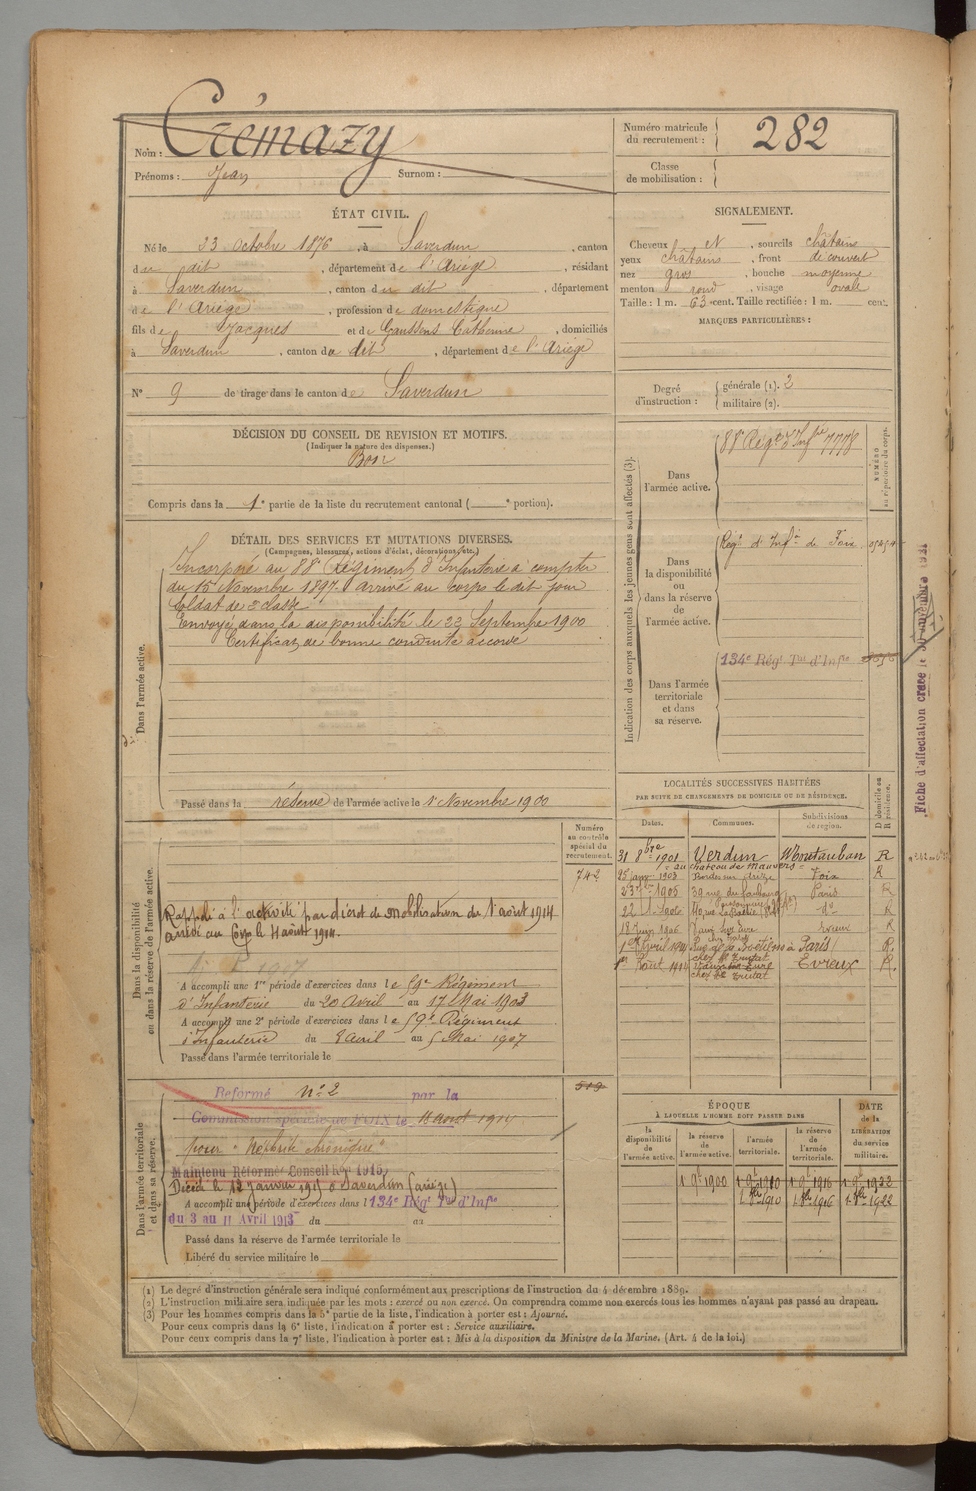 Nom : Crémazy
Prénoms : Jean Surnom :
Numéro matricule du recrutement : 282
Classe de mobilisation :
ÉTAT CIVIL.
Né le 23 Octobre 1876, à Saverdun, canton
du dit, département de l'Ariège, résidant
à Saverdun, canton du dit, département
de l'Ariège, profession de domestique
fils de Jacques et de Gaussens Catherine, domiciliés
à Saverdun, canton du dit, département de l'Ariège
N° 9 de tirage dans le canton de Saverdun
SIGNALEMENT.
Cheveux et, sourcils châtains
yeux châtains, front découvert
nez gros, bouche moyenne
menton rond, visage ovale
Taille : 1 m. 63 cent. Taille rectifiée : 1 m. cent.
MARQUES PARTICULIÈRES :
Degré d'instruction : générale (1). 2
militaire (2).
DÉCISION DU CONSEIL DE REVISION ET MOTIFS.
(Indiquer la nature des dispenses.)
Bon
Compris dans la 1e partie de la liste du recrutement cantonal ( e portion).
DÉTAIL DES SERVICES ET MUTATIONS DIVERSES.
(Campagnes, blessures, actions d'éclat, décorations, etc.)
Dans l'armée active.
Incorporé au 88e Régiment d'Infanterie à compter
du 15 Novembre 1897. arrivé au corps le dit jour
Soldat de 2e classe
Envoyé dans la disponibilité le 22 Septembre 1900
Certificat de bonne conduite accordé
Passé dans la réserve de l'armée active le 1er Novembre 1900
Indication des corps auxquels les jeunes gens sont affectés (3).
NUMÉRO au répertoire du corps.
Dans l'armée active.
88e Régt d'Infie 7778
Dans la disponibilité ou dans la réserve de l'armée active.
Régt d'Infie de Foix
Dans l'armée territoriale et dans sa réserve.
134e Régt Tal d'Infie
Fiche d'affectation créée le
LOCALITÉS SUCCESSIVES HABITÉES
PAR SUITE DE CHANGEMENTS DE DOMICILE OU DE RÉSIDENCE.
Dates. Communes. Subdivisions de région. D domicile ou R résidence.
31 8bre 1901 Verdun Montauban R
au château de Mauvers
25 janv. 1903 Foix R
1905 39 rue du faubourg Paris R
Poissonnière
22 1906 do R
18 1906 Evreux R
1er Avril 1911 à Paris R.
1er Août 1912 Evreux R.
Numéro au contrôle spécial du recrutement.
742
Dans la disponibilité ou dans la réserve de l'armée active.
Rappelé à l'activité par décret de mobilisation du 1er août 1914
arrivé au Corps le 4 août 1914.
A accompli une 1re période d'exercices dans le 59e Régiment
d'Infanterie du 20 Avril au 17 Mai 1903
A accompli une 2e période d'exercices dans le 59e Régiment
d'Infanterie du 8 Avril au 5 Mai 1907
Passé dans l'armée territoriale le
Dans l'armée territoriale et dans sa réserve.
519
Réformé n° 2 par la
Commission spéciale de FOIX le 18 août 1914
pour "Néphrite chronique"
Maintenu Réformé Conseil Rév 1915
Décédé le 12 Janvier 1915 à Saverdun (Ariège)
A accompli une période d'exercices dans le 134e Régt Tal d'Infie
du 3 au 11 Avril 1913 du au
Passé dans la réserve de l'armée territoriale le
Libéré du service militaire le
ÉPOQUE
À LAQUELLE L'HOMME DOIT PASSER DANS
DATE de la LIBÉRATION du service militaire.
la disponibilité de l'armée active. la réserve de l'armée active. l'armée territoriale. la réserve de l'armée territoriale.
1 9bre 1900 1 9bre 1910 1 9bre 1916 1 9bre 1922
1910 1916 1922
(1) Le degré d'instruction générale sera indiqué conformément aux prescriptions de l'instruction du 4 décembre 1889.
(2) L'instruction militaire sera indiquée par les mots : exercé ou non exercé. On comprendra comme non exercés tous les hommes n'ayant pas passé au drapeau.
(3) Pour les hommes compris dans la 5e partie de la liste, l'indication à porter est : Ajourné.
Pour ceux compris dans la 6e liste, l'indication à porter est : Service auxiliaire.
Pour ceux compris dans la 7e liste, l'indication à porter est : Mis à la disposition du Ministre de la Marine. (Art. 4 de la loi.)